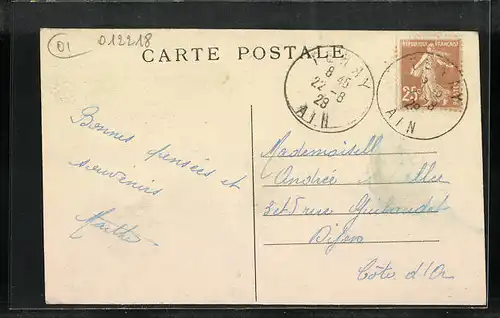 01
012218
CARTE POSTALE
FERNY
8 45
22 - 8
28
AIN
REPUBLIQUE FRANÇAISE
25c
AIN
Bonnes pensées et
souvenirs
Marthe
Mademoiselle
Andrée
3 et 5 rue Guillaudet
Dijon
Côte d'Or